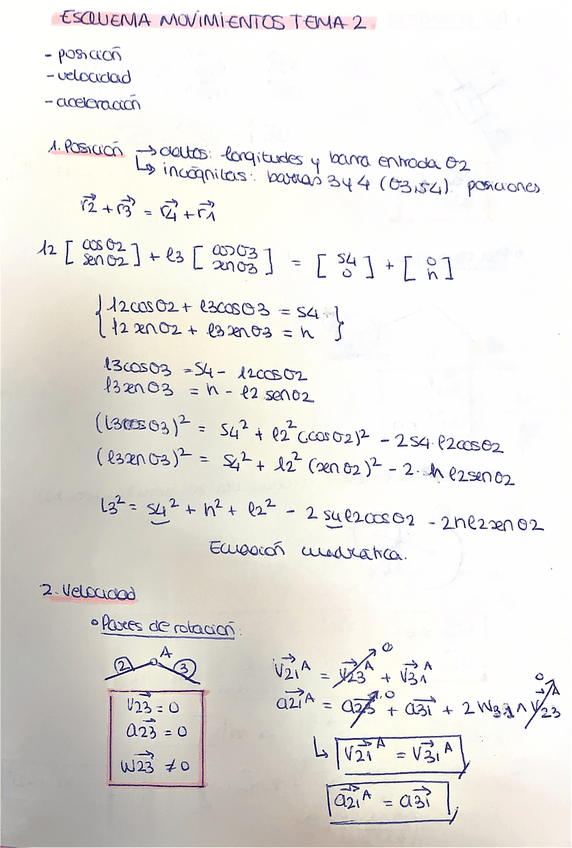 ESQUEMA MOVIMIENTOS TEMA 2
- posición
- velocidad
- aceleración
1. Posición → datos: longitudes y barra entrada θ2
↳ incógnitas: barras 3 y 4 (θ3, S4) posiciones
r⃗2 + r⃗3 = r⃗4 + r⃗1
l2 [cosθ2 senθ2] + l3 [cosθ3 senθ3] = [S4 0] + [0 h]
{ l2cosθ2 + l3cosθ3 = S4
l2 senθ2 + l3 senθ3 = h }
l3cosθ3 = S4 - l2cosθ2
l3senθ3 = h - l2 senθ2
(l3cosθ3)² = S4² + l2² (cosθ2)² - 2S4·l2cosθ2
(l3senθ3)² = S4² + l2² (senθ2)² - 2·h l2senθ2
l3² = S4² + h² + l2² - 2 S4 l2cosθ2 - 2hl2senθ2
Ecuación cuadrática.
2. Velocidad
° Pares de rotación:
2 A 3
V⃗23 = 0
a⃗23 = 0
W⃗23 ≠ 0
V⃗21ᴬ = V⃗23ᴬ 0 + V⃗31ᴬ
a⃗21ᴬ = a⃗23 0 + a⃗31 + 2 W31 ∧ V⃗23ᴬ 0
↳ V⃗21ᴬ = V⃗31ᴬ
a⃗21ᴬ = a⃗31